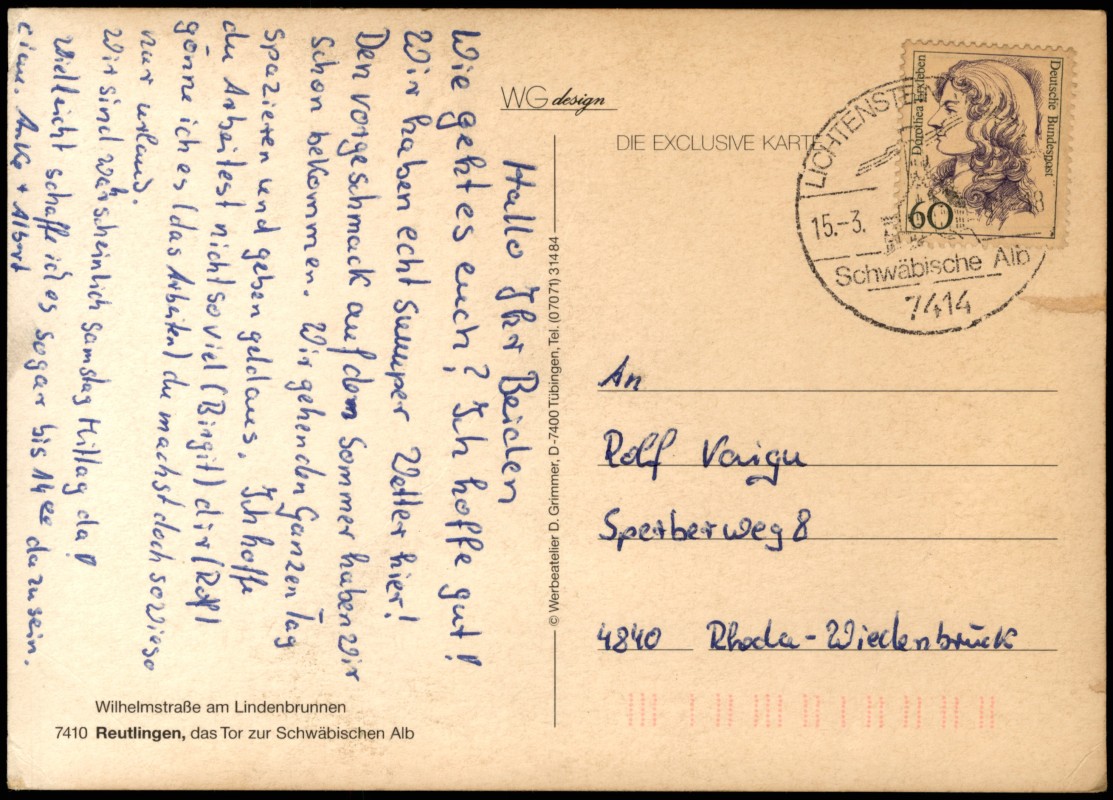 WG design
DIE EXCLUSIVE KARTE
Deutsche Bundespost
Dorothea Erxleben
60
LICHTENSTEIN
15.-3.
Schwäbische Alb
7414
Hallo Ihr Beiden
Wie geht es euch? Ich hoffe gut!
Wir haben echt sumper Wetter hier!
Den vorgeschmack auf dem Sommer haben Wir
schon bekommen. Wir gehen den Ganzen Tag
spazieren und geben geld aus. Ich hoffe
du Arbeitest nicht so viel (Birgit) dir (Rolf)
gönne ich es (das Arbeiten) du machst doch so wieso
nur urlaub.
Wir sind warscheinlich Samstag Mittag da!
Vielleicht schaffe ich es sogar bis 14 da zu sein.
Anke + Albert
© Werbeatelier D. Grimmer, D-7400 Tübingen, Tel. (07071) 31484
An
Rolf
Sperberweg 8
4840 Rheda-Wiedenbrück
Wilhelmstraße am Lindenbrunnen
7410 Reutlingen, das Tor zur Schwäbischen Alb